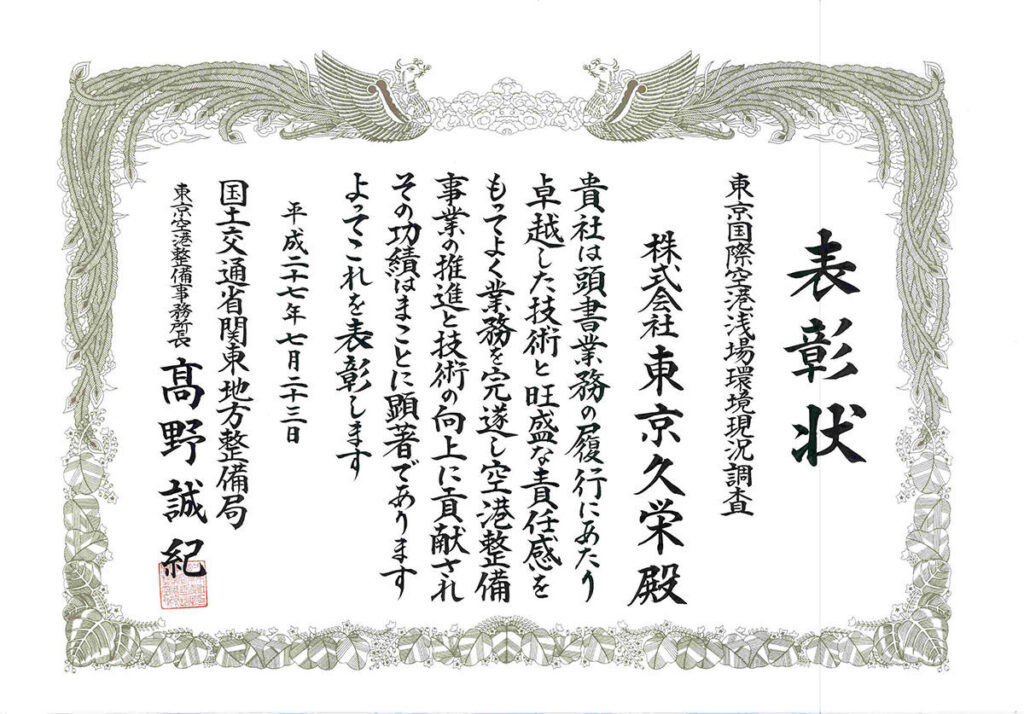 表彰状
東京国際空港浅場環境現況調査
株式会社東京久栄殿
貴社は頭書業務の履行にあたり
卓越した技術と旺盛な責任感を
もってよく業務を完遂し空港整備
事業の推進と技術の向上に貢献され
その功績はまことに顕著であります
よってこれを表彰します
平成二十七年七月二十三日
国土交通省関東地方整備局
東京空港整備事務所長
髙野誠紀